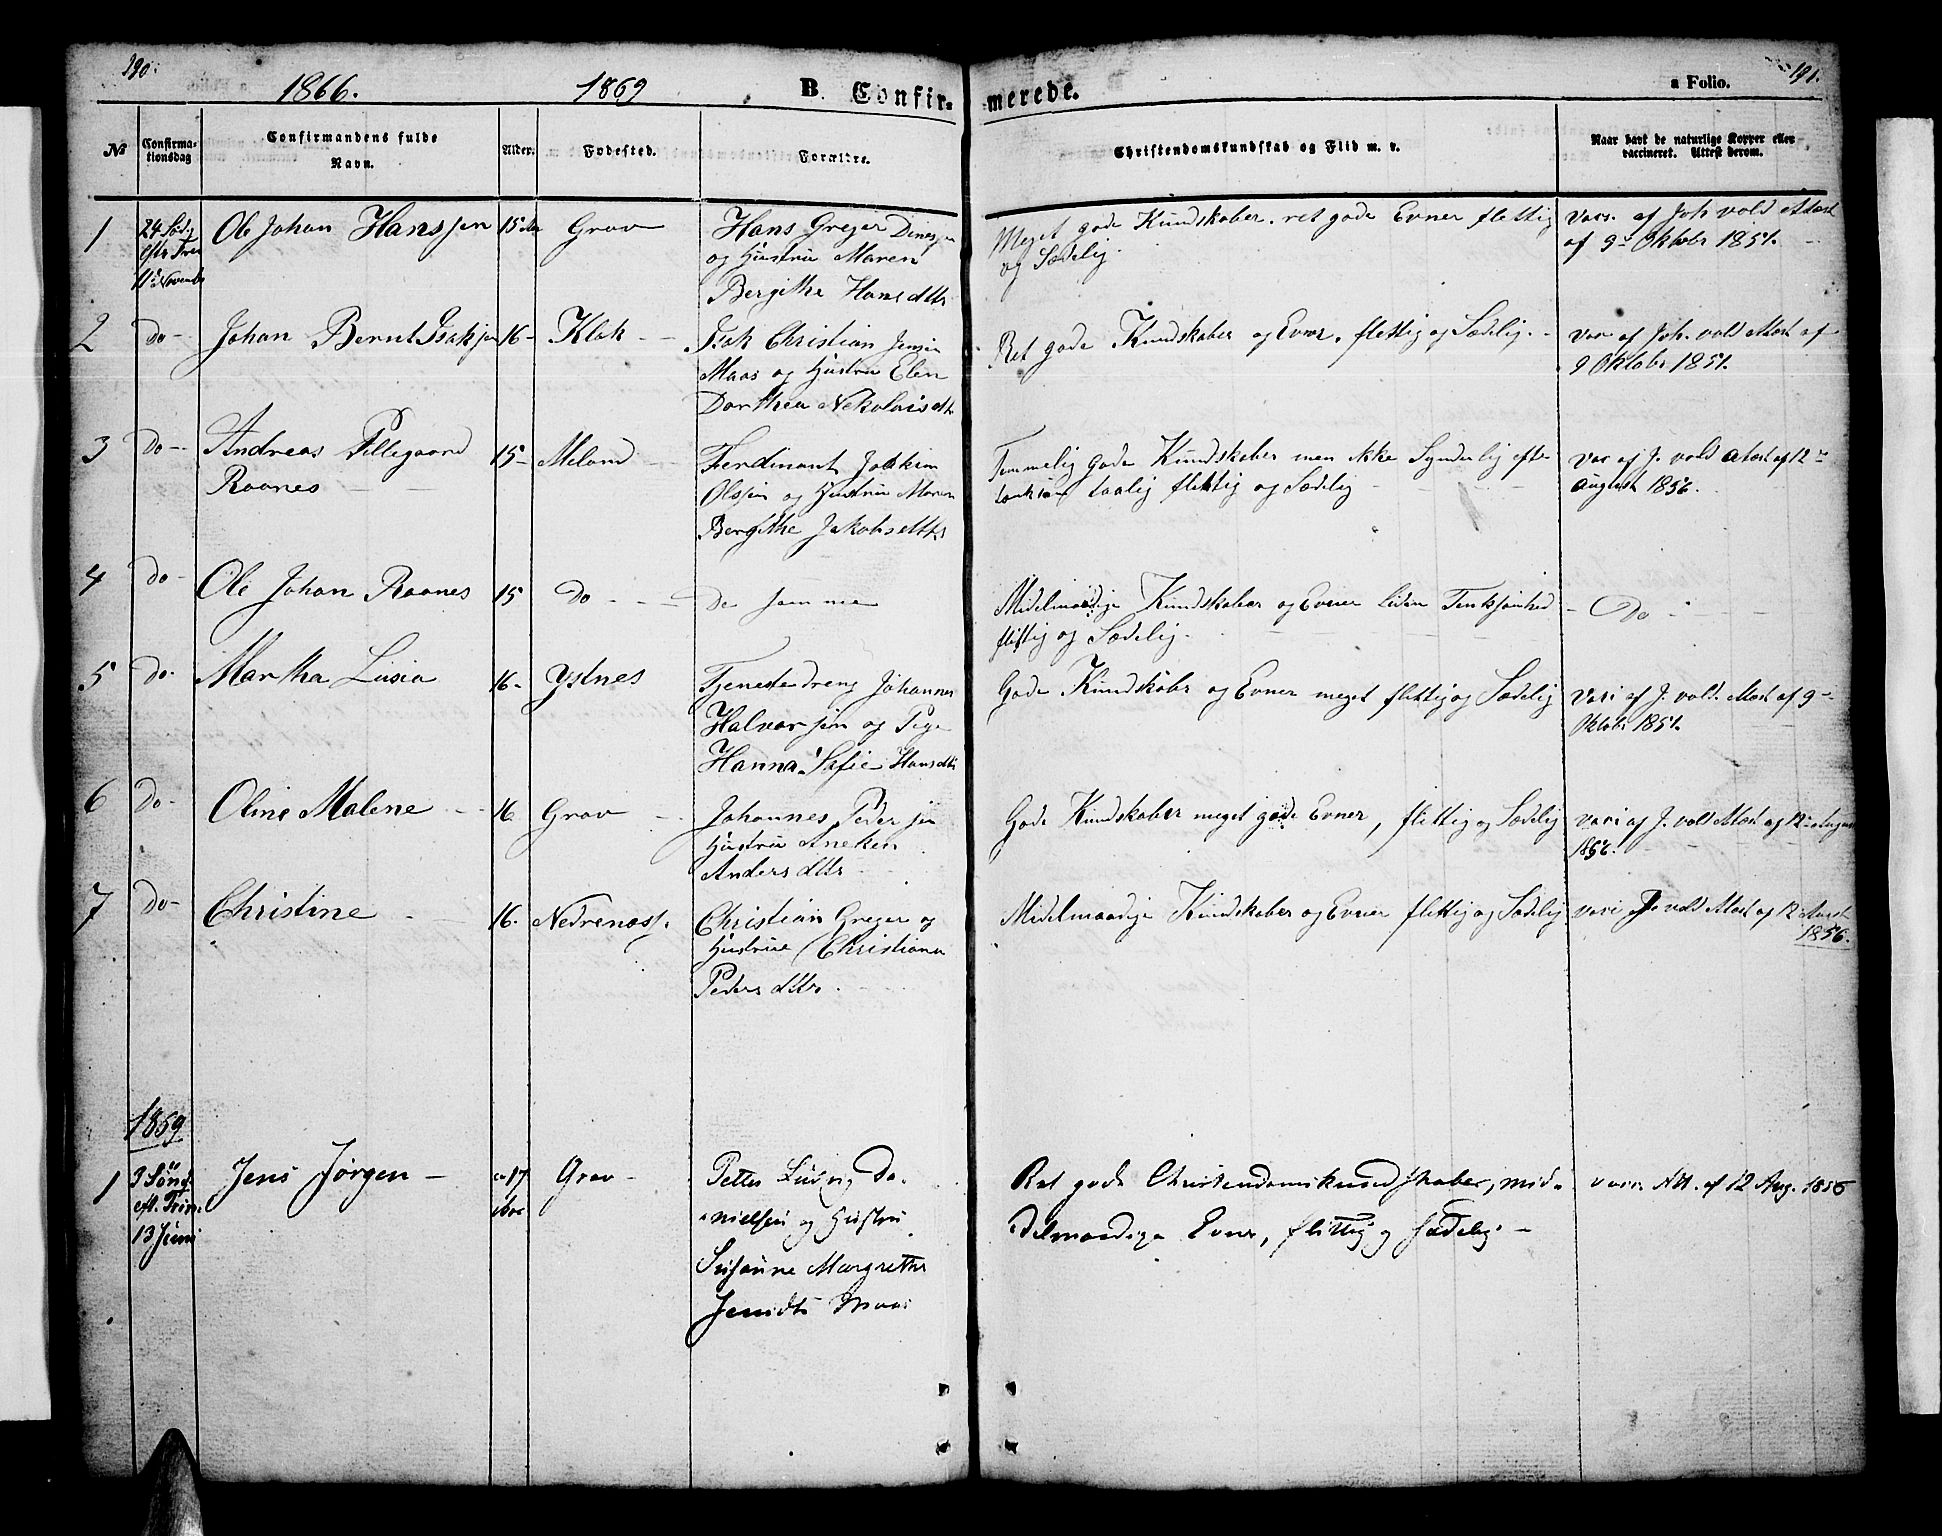 190.
1866.
1869
B. Confir-
merede.
a Folio.
191.
No
Confirma-
tionsdag
Confirmandens fulde
Navn.
Alder.
Fødested.
Forældre.
Christendomskundskab og Flid m. v.
Naar havt de naturlige Kopper eller
vaccineret. Attest derom.
1
24 Sød
eftr Tre
11te Novembr
Ole Johan Hanssen
15
Grav
Hans Greger
og Hustru Maren
Bergithe Hansdttr
Meget gode Kundskaber. ret gode Evner flettig
og Sædelig.
Vacs. af Joh vold Atest
af 9de Oktobr 1851.
2
do-
Johan Bernt Isaksen
16-
Klok
Isak Christian Jensen
Maas og Hustru Elen
Dorthea Nekolaisdtr
Ret gode Kundskaber og Evner. flettig og Sædelig.-
Vac af Joh. vold Atest af
9 Oktobr 1851.
3
Do-
Andreas Pillegaard
Raanes
15-
Meland
Ferdinant Joakim
Olssen og Hustru Maren
Bergithe Jakobsdttr
Temmelig gode Kundskaber men ikke Synderlig efte
taalig flettig og Sædelig
Vac af J. vold Atest af 12te
august 1856.
4
do-
Ole Johan Raanes
15
Do
De samme
Midelmaadige Kundskaber og Evner liden Tenksomhed
flittig og Sædelig.
- Do -
5
Do-
Martha Lusia
16-
Ystnes
Tjenestedreng Johannes
Halvorsen og Pige
Hanna Sofie Hansdttr
Gode Kundskabr og Evner meget flettig og Sædelig
Vaci af J. vold. Atest af 9de
Oktobr 1851.
6
Do-
Oline Malene
16
Grav
Johannes Pedersen
Hustru Aneken
Andersdttr
Gode Kundskaber meget gode Evner, flittig og Sædelig
vaci af J. vold Atest af 12te August
1856.
7
Do-
Christine
16.
Nedrenæss.
Christian Greger og
Hustrue Christiana
Pedersdttr.
Midelmaadige Kundskaber og Evner flettig og Sædelig
vaci af J. vold Atest af 12 August
1856.
1859
1
3 Sönd.
eft. Trin.
13 Juni
Jens Jørgen -
17
Grav -
Petter Ludvig Da-
nielsen og Hustru
Susanne Margrethe
Jensdtr Maas
Ret gode Christendomskundskaber, mid-
delmaadige Evner, flittig og sædelig -
vacc. Att. af 12 Aug. 1856